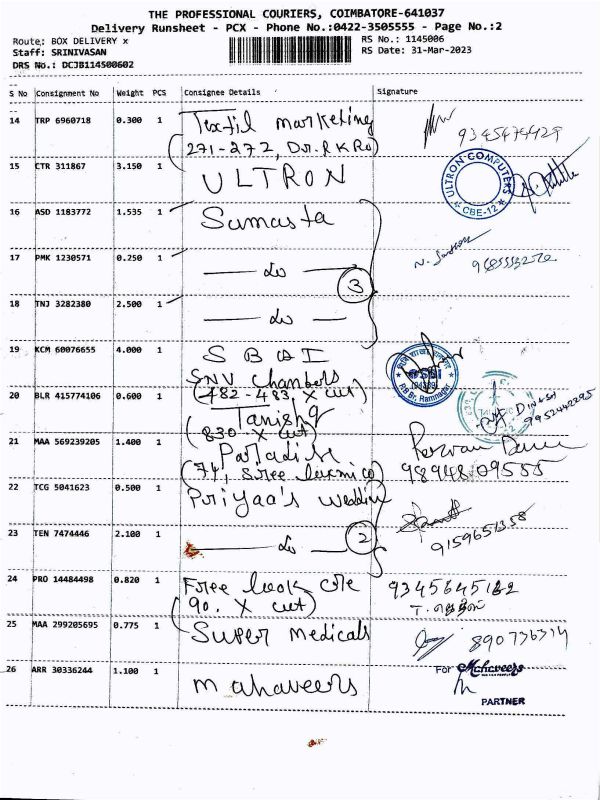 THE PROFESSIONAL COURIERS, COIMBATORE-641037
Delivery Runsheet - PCX - Phone No.:0422-3505555 - Page No.:2
Route: BOX DELIVERY x
RS No.: 1145006
Staff: SRINIVASAN
RS Date: 31-Mar-2023
DRS No.: DCJB114500602
S No Consignment No Weight PCS Consignee Details Signature
14 TRP 6960718 0.300 1 Textil marketing
271-272, Dr. R K Ro)
9345474429
15 CTR 311867 3.150 1 ULTRON
ULTRON COMPUTERS
CBE-12
16 ASD 1183772 1.535 1 Samasta
17 PMK 1230571 0.250 1 — do —
3
18 TNJ 3282380 2.500 1 — do —
19 KCM 60076655 4.000 1 S B O I
SBI
R.B Br. Ramnagar
SNV Chambers
20 BLR 415774106 0.600 1 (482-483, X cut)
Tanishq
DINESH
9952442295
(830 - X cut)
21 MAA 569239205 1.400 1 Paradise
(74, Sree laxmi co)
98948 09555
22 TCG 5041623 0.500 1 Priyaa's weddin
23 TEN 7474446 2.100 1 — do —
2
9159651358
24 PRO 14484498 0.820 1 Free look cre
(90. X cut)
9345645122
25 MAA 299205695 0.775 1 Super medicals
890736314
26 ARR 30336244 1.100 1 mahaveers
For Mahaveers
PARTNER